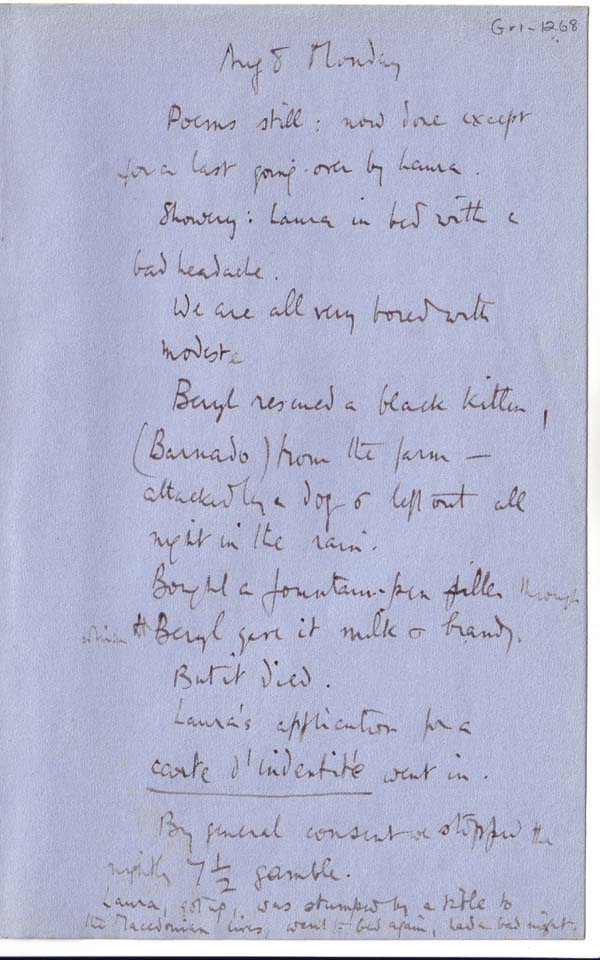 Gr1-1268
Aug 8 Monday
Poems still: now done except
for a last going-over by Laura.
Showery: Laura in bed with a
bad headache.
We are all very bored with
modeste
Beryl rescued a black kitten,
(Barnado) from the farm —
attacked by a dog & left out all
night in the rain.
Bought a fountain-pen filler through
which Beryl gave it milk & brandy.
But it died.
Laura's application for a
carte d'indentité went in.
By general consent we stopped the
nightly 7½ gamble.
Laura, got up, was stumped by a title to
the Macedonian lives, went to bed again, had a bad night.